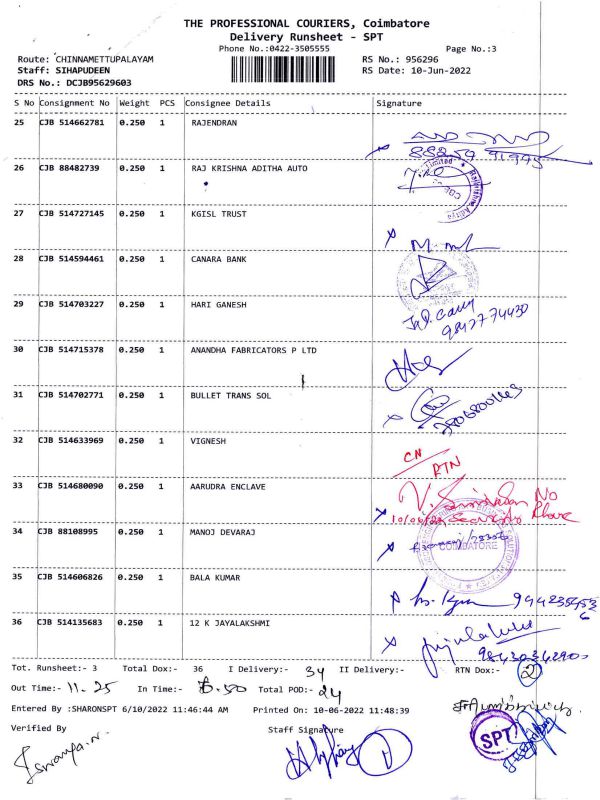 THE PROFESSIONAL COURIERS, Coimbatore
Delivery Runsheet - SPT
Phone No.:0422-3505555 Page No.:3
Route: CHINNAMETTUPALAYAM RS No.: 956296
Staff: SIHAPUDEEN RS Date: 10-Jun-2022
DRS No.: DCJB95629603
S No Consignment No Weight PCS Consignee Details Signature
25 CJB 514662781 0.250 1 RAJENDRAN
26 CJB 88482739 0.250 1 RAJ KRISHNA ADITHA AUTO
27 CJB 514727145 0.250 1 KGISL TRUST
28 CJB 514594461 0.250 1 CANARA BANK
29 CJB 514703227 0.250 1 HARI GANESH
9842774430
30 CJB 514715378 0.250 1 ANANDHA FABRICATORS P LTD
31 CJB 514702771 0.250 1 BULLET TRANS SOL
32 CJB 514633969 0.250 1 VIGNESH
CN
RTN
33 CJB 514680090 0.250 1 AARUDRA ENCLAVE
No
Phone
34 CJB 88108995 0.250 1 MANOJ DEVARAJ
COIMBATORE
35 CJB 514606826 0.250 1 BALA KUMAR
36 CJB 514135683 0.250 1 12 K JAYALAKSHMI
Tot. Runsheet:- 3 Total Dox:- 36 I Delivery:- 34 II Delivery:- RTN Dox:- 2
Out Time:- 11.25 In Time:- Total POD:- 24
Entered By :SHARONSPT 6/10/2022 11:46:44 AM Printed On: 10-06-2022 11:48:39
Verified By Staff Signature
SPT